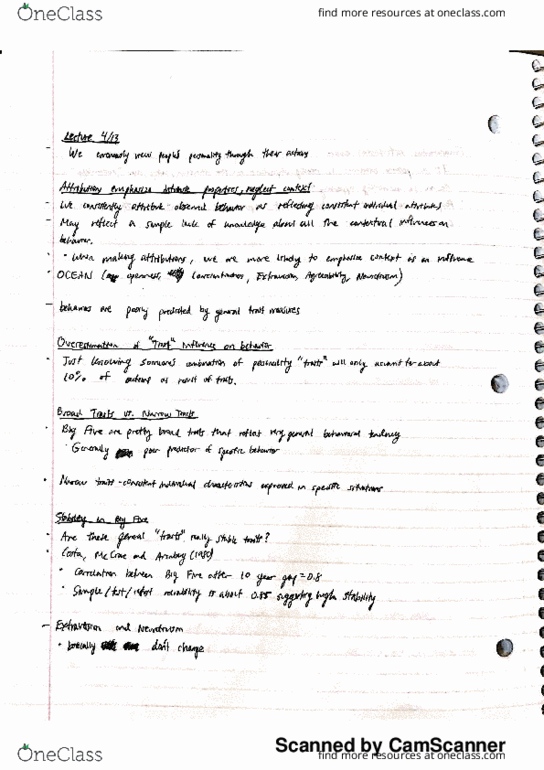 OneClass
find more resources at oneclass.com
Lecture 4/13
- We commonly view people's personality through their actions
Attributions emphasize intrinsic properties, neglect context
We consistently attribute observed behavior as reflecting consistent individual attributes
May reflect a simple lack of knowledge about all the contextual influences on
behavior.
• When making attributions, we are more likely to emphasize context as an influence
• OCEAN ( openness, Conscientiousness, Extraversion, Agreeability, Neuroticism)
- behaviors are poorly predicted by general trait measures
Overestimation of "Trait" Influence on behavior
• Just knowing someone's combination of personality "traits" will only account for about
10% of actions as result of traits.
Broad Traits vs. Narrow Traits
• Big Five are pretty broad traits that reflect very general behavioral tendency
• Generally poor predictor of specific behavior
• Narrow traits - consistent individual characteristics expressed in specific situations
Stability in Big Five
• Are these general "traits" really stable traits?
• Costa, McCrae and
• Correlation between Big Five after 10 year gap = 0.8
• Sample/test/retest reliability is about 0.85 suggesting high stability
- Extraversion and Neuroticism
• basically don't change
Scanned by CamScanner
OneClass
find more resources at oneclass.com